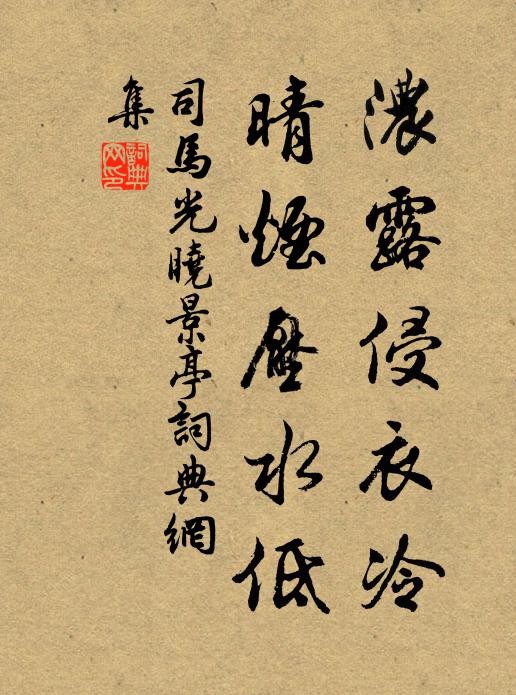 濃露侵衣冷
晴煙壓水低
司馬光曉景亭詞典網
集
詞典
网印